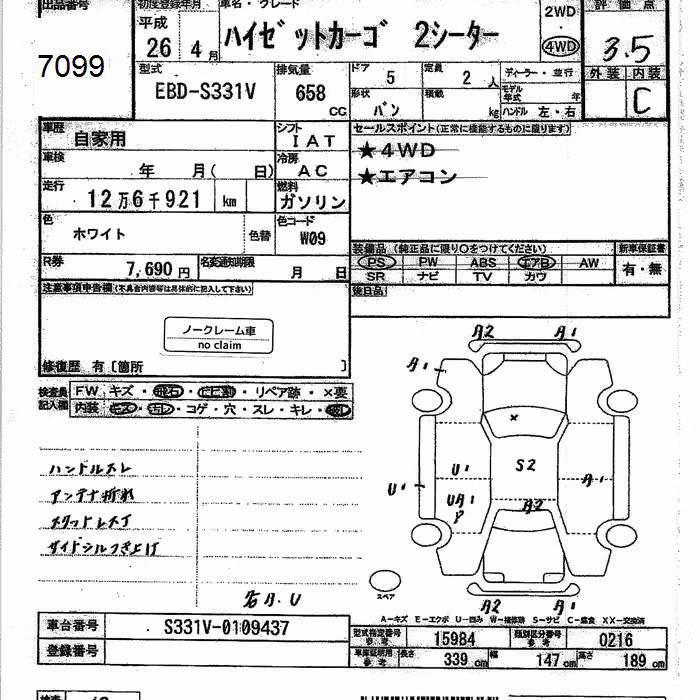 出品番号
7099
初度登録年月
平成
26 4月
車名・グレード
ハイゼットカーゴ 2シーター
2WD
4WD
評価点
3.5
型式
EBD-S331V
排気量
658
CC
ドア
5
定員
2人
形状
バン
積載
kg
ディーラー・並行
モデル年式
年
ハンドル 左・右
外装 内装
C
車歴
自家用
シフト
IAT
車検
年 月( 日)
冷房
AC
走行
12万6千921 km
燃料
ガソリン
色
ホワイト
色替
色コード
W09
R券
7,690円
名変通知期限
月 日
セールスポイント(正常に機能するものに限ります)
★4WD
★エアコン
装備品 (純正品に限り○をつけてください)
新車保証書
PS PW ABS エアB AW
SR ナビ TV カワ
有・無
後日品
注意事項申告欄(不具合内容等は具体的に記入して下さい)
ノークレーム車
no claim
修復歴 有〔箇所 〕
検査員記入欄
FW キズ・飛石・ヒビ割・リペア跡・×要
内装 キズ・汚レ・コゲ・穴・スレ・キレ・
ハンドルスレ
アンテナ折れ
サイドシルつき上げ
A2 A1
A1
×
U1 S2
U1 UA1 P A2 A1
A2 A1
スペア
A-キズ E-エクボ U-凹み W-補修跡 S-サビ C-腐食 XX-交換済
車台番号
S331V-0109437
登録番号
型式指定番号 参考
15984
類別区分番号 参考
0216
車庫証明用 参考
長さ 339 cm 幅 147 cm 高さ 189 cm